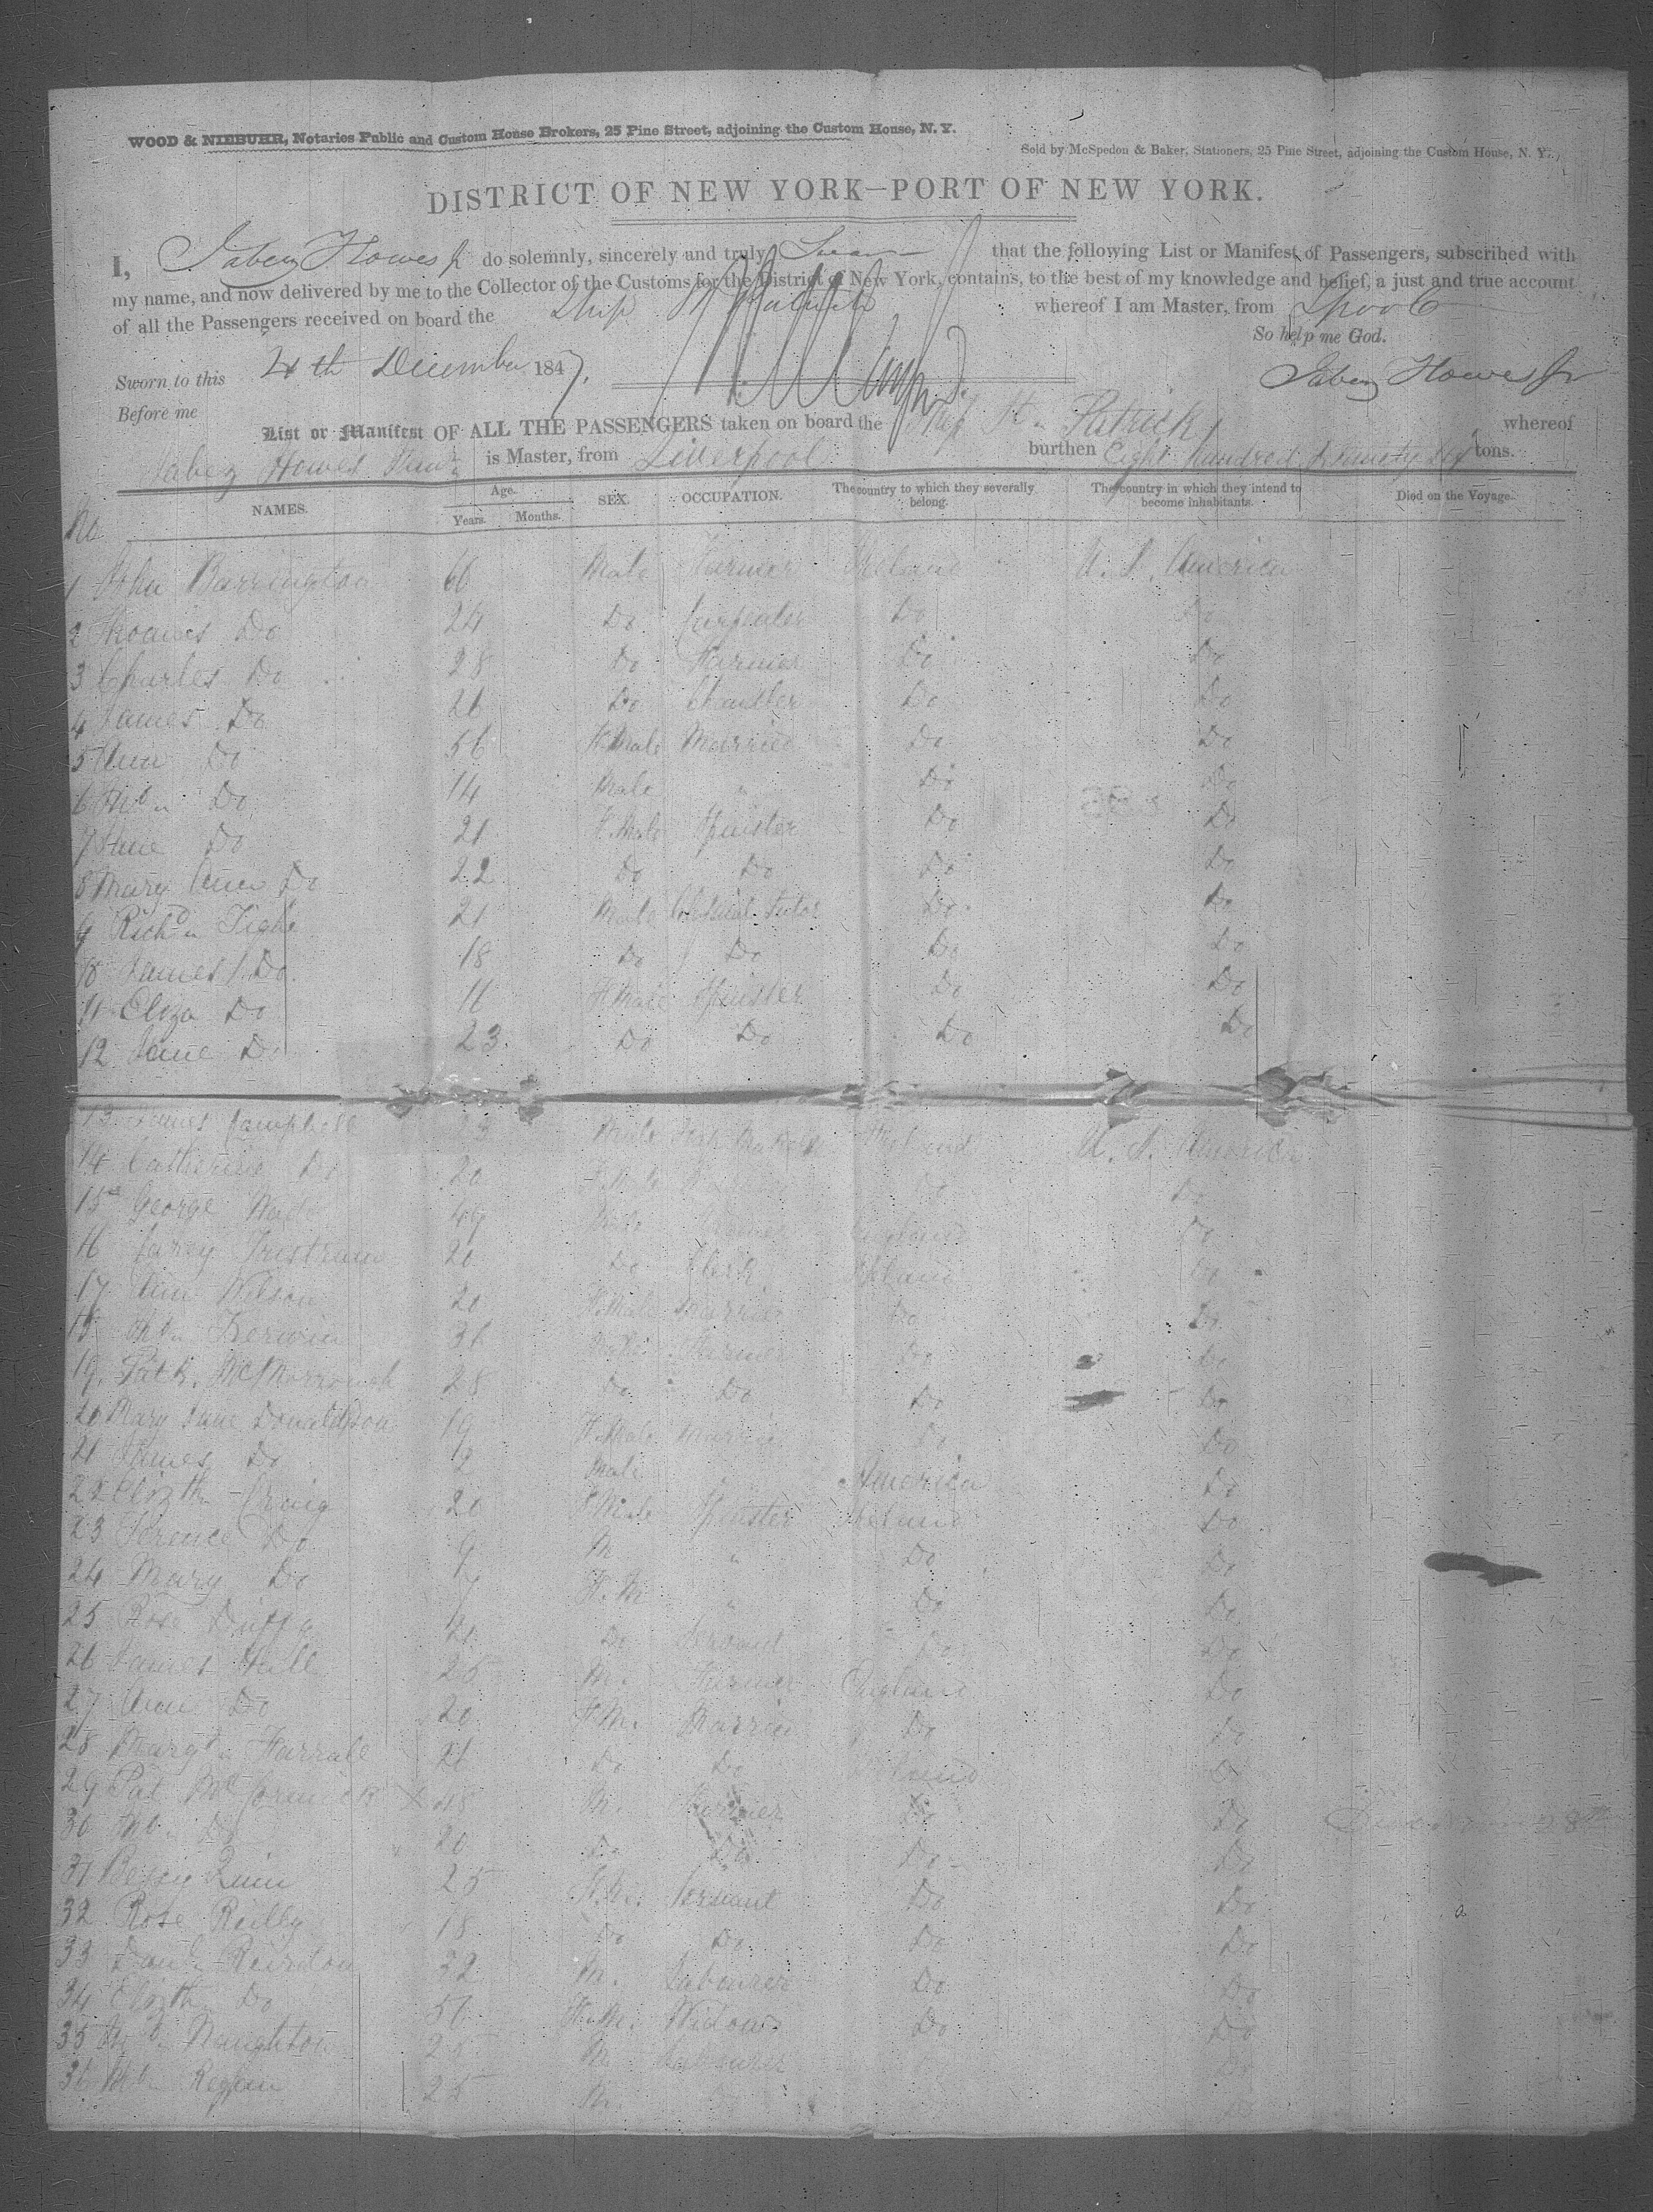 WOOD & NIEBUHR, Notaries Public and Custom House Brokers, 25 Pine Street, adjoining the Custom House, N. Y.
Sold by McSpedon & Baker, Stationers, 25 Pine Street, adjoining the Custom House, N. Y.
DISTRICT OF NEW YORK—PORT OF NEW YORK.
I, Jabez Howes Jr do solemnly, sincerely and truly Swear that the following List or Manifest of Passengers, subscribed with
my name, and now delivered by me to the Collector of the Customs for the District of New York, contains, to the best of my knowledge and belief, a just and true account
of all the Passengers received on board the Ship St Patrick whereof I am Master, from Lpool
So help me God.
Sworn to this 4th December 1847. Jabez Howes Jr
Before me
List or Manifest OF ALL THE PASSENGERS taken on board the Ship St Patrick whereof
Jabez Howes is Master, from Liverpool burthen Eight hundred & Ninety Six tons.
No NAMES. Age. Years. Months. SEX. OCCUPATION. The country to which they severally belong. The country in which they intend to become inhabitants. Died on the Voyage.
1 John Barrington 66 Male Farmer Ireland U. S. America
2 Thomas Do 24 Do Carpenter Do Do
3 Charles Do 28 Do Farmer Do Do
4 James Do 26 Do Do Do
5 Ann Do 56 F.Male Married Do Do
6 Do 14 Male " Do Do
7 Jane Do 21 F.Male Spinster Do Do
8 Mary Ann Do 22 Do Do Do Do
9 Richd Tighe 21 Male Classical Tutor Do Do
10 James Do 18 Do Do Do Do
11 Eliza Do 16 F.Male Spinster Do Do
12 Jane Do 23 Do Do Do Do
13 James Campbell 23 Male Ireland U. S. America
14 Catherine Do 20 F.Male Married Do Do
15 George 49 Male Farmer England Do
16 Tristram 20 Do Clerk Ireland Do
17 Ann Wilson 20 F.Male Married Do Do
18 Kerwin 36 Male Farmer Do Do
19 Patk. McMorrough 28 Do Do Do Do
20 Mary Jane Donaldson 19 F.Male Married Do Do
21 James Do 2 Male " America Do
22 Elizth Craig 20 F.Male Spinster Ireland Do
23 Terence Do 9 M " Do Do
24 Mary Do 7 F.M " Do Do
25 Rose Duffy 21 Do Servant Do Do
26 James Hall 25 M. Farmer England Do
27 Ann Do 20 F.M. Married Do Do
28 Margt Farrall 26 Do Do Ireland Do
29 Pat McCormick 48 M. Farmer Do Do
30 Do 20 Do Do Do Do
31 Bessy Quin 25 F.M. Servant Do Do
32 Rose Reilly 18 Do Do Do Do
33 Danl Reirdon 22 M. Labourer Do Do
34 Elizth Do 56 F.M. Widow Do Do
35 Naughton 25 M Labourer Do
36 Regan 25 M.